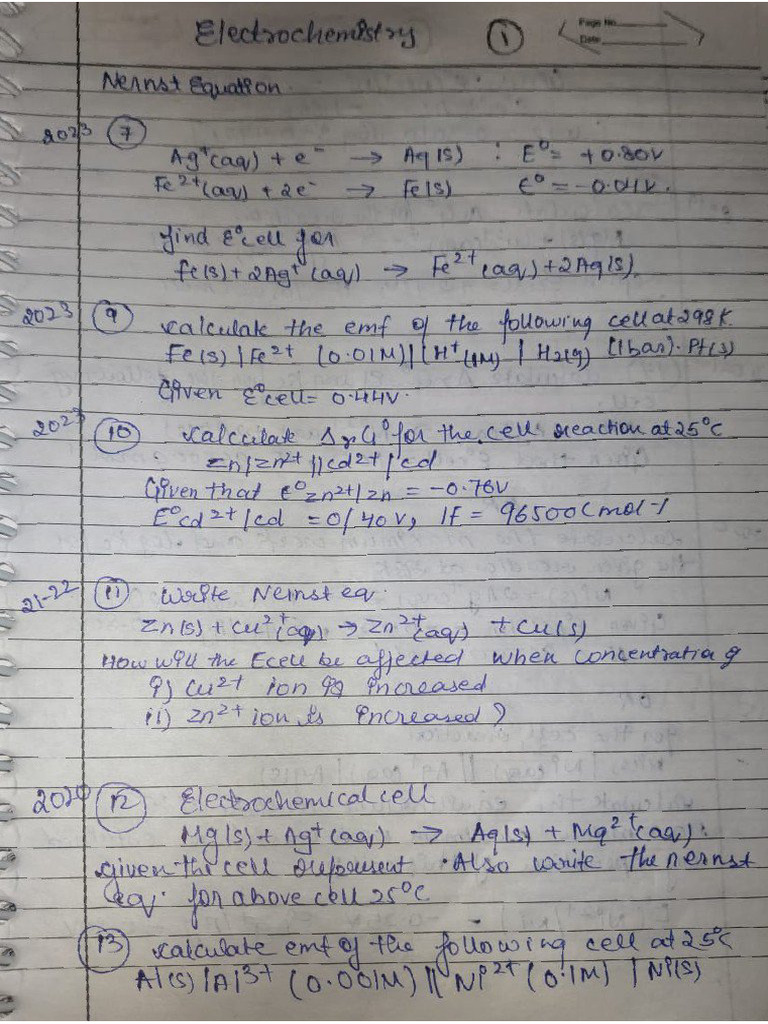 Electrochemistry ① Page No.
Date
Nernst Equation.
2023 ⑦
Ag⁺(aq) + e⁻ → Ag(s) : E⁰= +0.80V
Fe²⁺(aq) + 2e⁻ → Fe(s) E⁰ = -0.044V.
find E⁰cell for
Fe(s) + 2Ag⁺ (aq) → Fe²⁺ (aq) + 2Ag(s).
2023 ⑨ Calculate the emf of the following cell at 298K.
Fe(s) | Fe²⁺ (0.01M) || H⁺(1M) | H₂(g) (1bar). Pt(s)
Given E⁰cell= 0.44V.
⑩ Calcculate ΔrG⁰ for the cell reaction at 25°C
Zn|Zn²⁺ ||Cd²⁺|Cd
Given that E⁰Zn²⁺|Zn = -0.76V
E⁰Cd²⁺|Cd = 0/40V, 1F = 96500Cmol-1
21-22 ⑪ Write Nernst eq.
Zn(s) + Cu²⁺(aq) → Zn²⁺(aq) + Cu(s)
How will the Ecell be affected when concentratia of
i) Cu²⁺ ion is increased
ii) Zn²⁺ ion is increased?
⑫ Electrochemical cell
Mg(s) + Ag⁺(aq) → Ag(s) + Mg²⁺(aq).
given the cell represent. Also write the nernst
eq. for above cell 25°C
⑬ Calculate emf of the following cell at 25°C
Al(s) |Al³⁺ (0.001M) || Ni²⁺ (0.1M) | Ni(s)